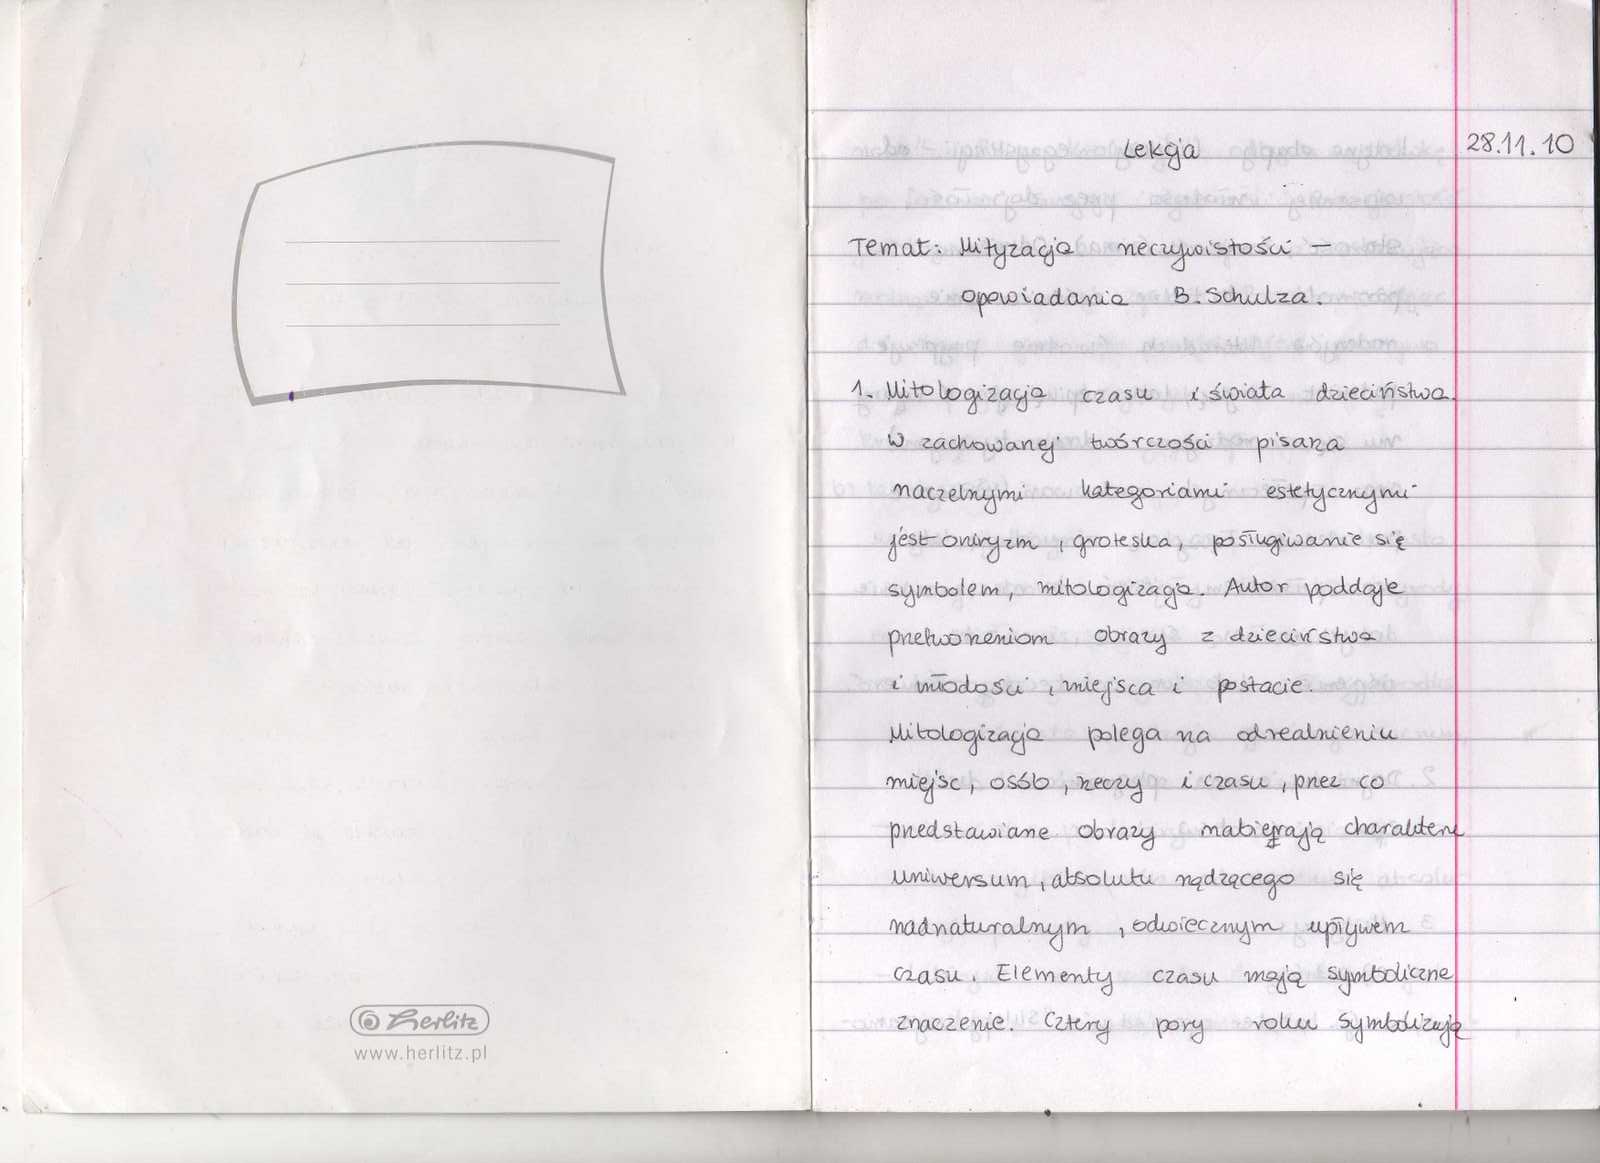 Herlitz
www.herlitz.pl
Lekcja 28.11.10
Temat: Mityzacja rzeczywistości –
opowiadania B. Schulza.
1. Mitologizacja czasu i świata dzieciństwa.
W zachowanej twórczości pisarza
naczelnymi kategoriami estetycznymi
jest oniryzm, groteska, posługiwanie się
symbolem, mitologizacja. Autor poddaje
przetworzeniom obrazy z dzieciństwa
i młodości, miejsca i postacie.
Mitologizacja polega na odrealnieniu
miejsc, osób, rzeczy i czasu, przez co
przedstawiane obrazy nabierają charakteru
uniwersum, absolutu rządzącego się
nadnaturalnym, odwiecznym upływem
czasu. Elementy czasu mają symboliczne
znaczenie. Cztery pory roku symbolizują